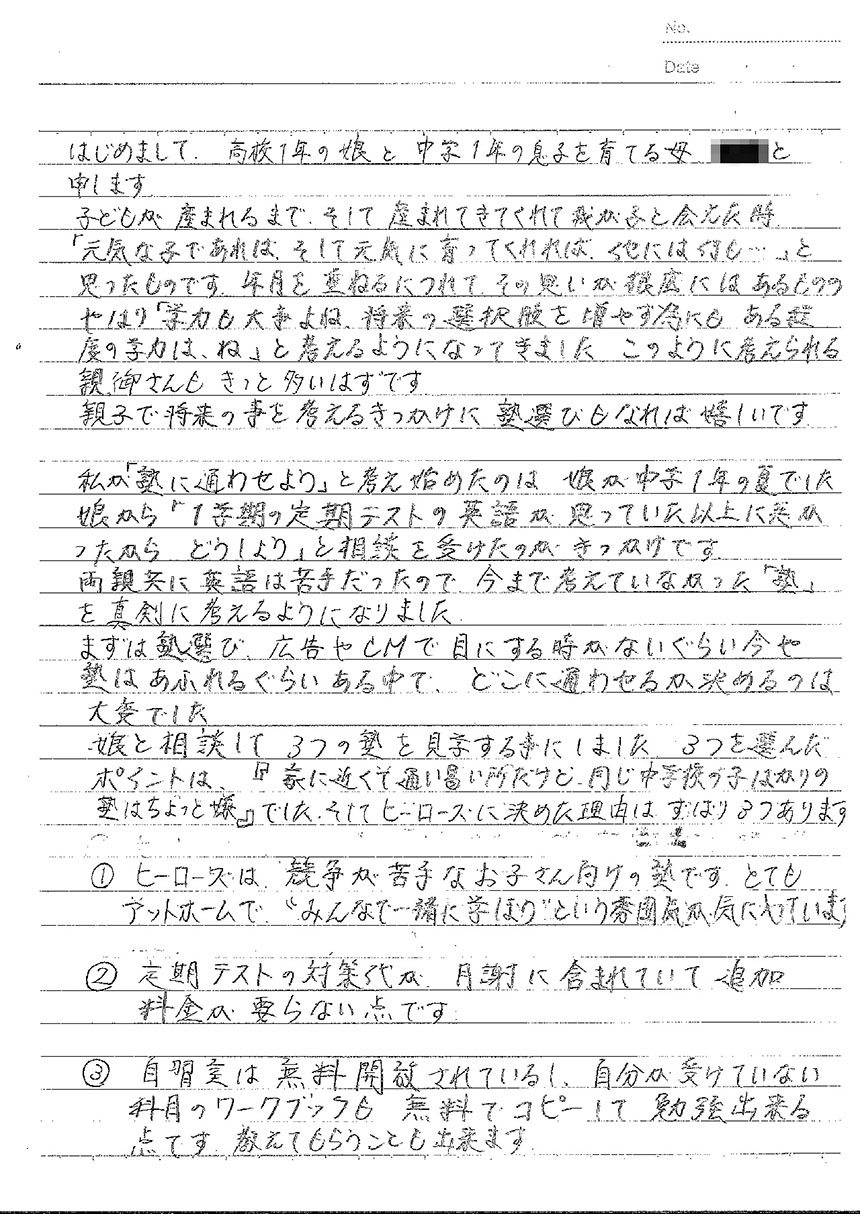 No.
Date
はじめまして. 高校1年の娘と 中学1年の息子を育てる母 と
申します
子どもが 産まれるまで. そして 産まれてきてくれて我が子と会えた時
「元気な子であれば. そして元気に育ってくれれば. 他には何も…」と
思ったものです. 年月を重ねるにつれて. その思いが根底にはあるものの
やはり「学力も大事よね. 将来の選択肢を増やす為にも ある程
度の学力は、ね」と考えるようになってきました このように考えられる
親御さんも きっと多いはずです
親子で将来の事を考えるきっかけに 塾選びもなれば嬉しいです
私が「塾に通わせよう」と考え始めたのは 娘が中学1年の夏でした
娘から「1学期の定期テストの英語が 思っていた以上に悪か
ったから どうしよう」と相談を受けたのが きっかけです
両親共に英語は苦手だったので. 今まで考えていなかった「塾」
を真剣に考えるようになりました
まずは塾選び. 広告やCMで目にする時がないぐらい今や
塾はあふれるぐらいある中で、どこに通わせるか決めるのは
大変でした
娘と相談して 3つの塾を見学する事にしました. 3つを選んだ
ポイントは、『家に近くて通い易い所だけど. 同じ中学校の子ばかりの
塾はちょっと嫌』でした. そしてヒーローズに決めた理由は ずばり3つあります
① ヒーローズは、競争が苦手なお子さん向けの塾です. とても
アットホームで、“みんなで一緒に学ぼう”という雰囲気が気に入っています
② 定期テストの対策代が. 月謝に含まれていて 追加
料金が要らない点です
③ 自習室は無料開放されているし、自分が受けていない
科目のワークブックも 無料でコピーして 勉強出来る
点です. 教えてもらうことも出来ます.